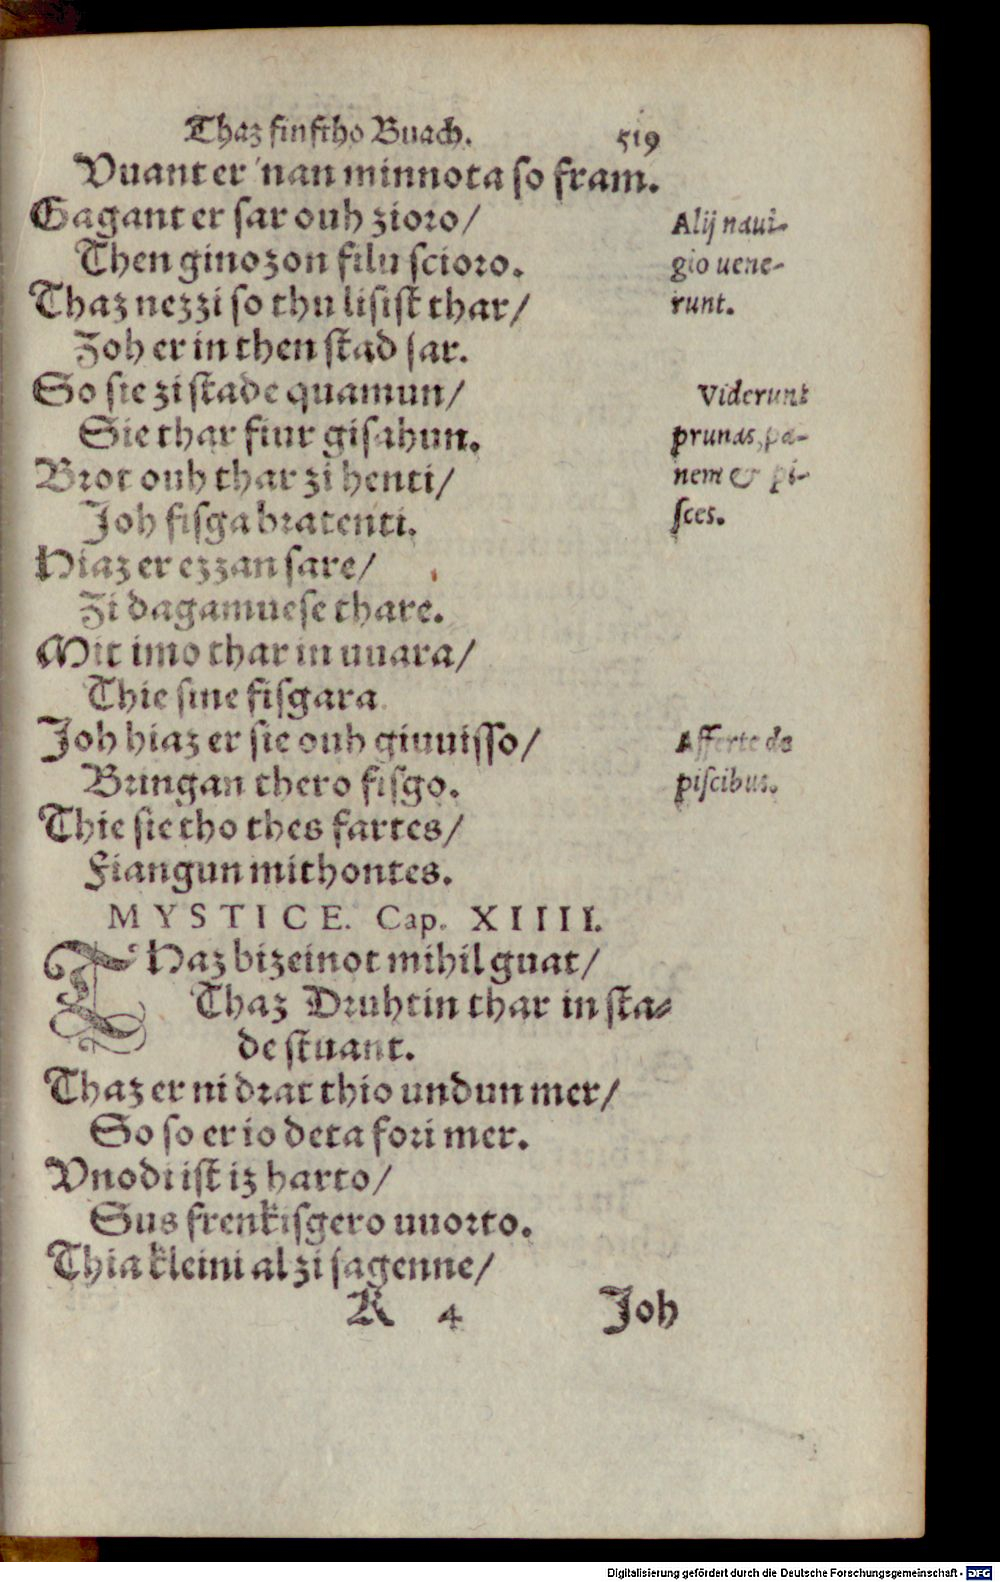 Thaz finftho Buach. 519
Vuant er 'nan minnota so fram.
Gagant er sar ouh zioro/
Then ginozon filu scioro.
Thaz nezzi so thu lisist thar/
Zoh er in then stad sar.
So sie zi stade quamun/
Sie thar fiur gisahun.
Brot ouh thar zi henti/
Joh fisga bratenti.
Hiaz er ezzan sare/
Zi dagamuese thare.
Mit imo thar in uuara/
Thie sine fisgara
Joh hiaz er sie ouh giuuisso/
Bringan thero fisgo.
Thie sie tho thes fartes/
Fiangun mithontes.
Alij naui-
gio uene-
runt.
Viderunt
prunas, pa-
nem & pi-
sces.
Afferte de
piscibus.
MYSTICE. Cap. XIIII.
THaz bizeinot mihil guat/
Thaz Druhtin thar in sta-
de stuant.
Thaz er ni drat thio undun mer/
So so er io deta fori mer.
Vnodi ist iz harto/
Sus frenkisgero uuorto.
Thia kleini al zi sagenne/
K 4 Joh
Digitalisierung gefördert durch die Deutsche Forschungsgemeinschaft - DFG